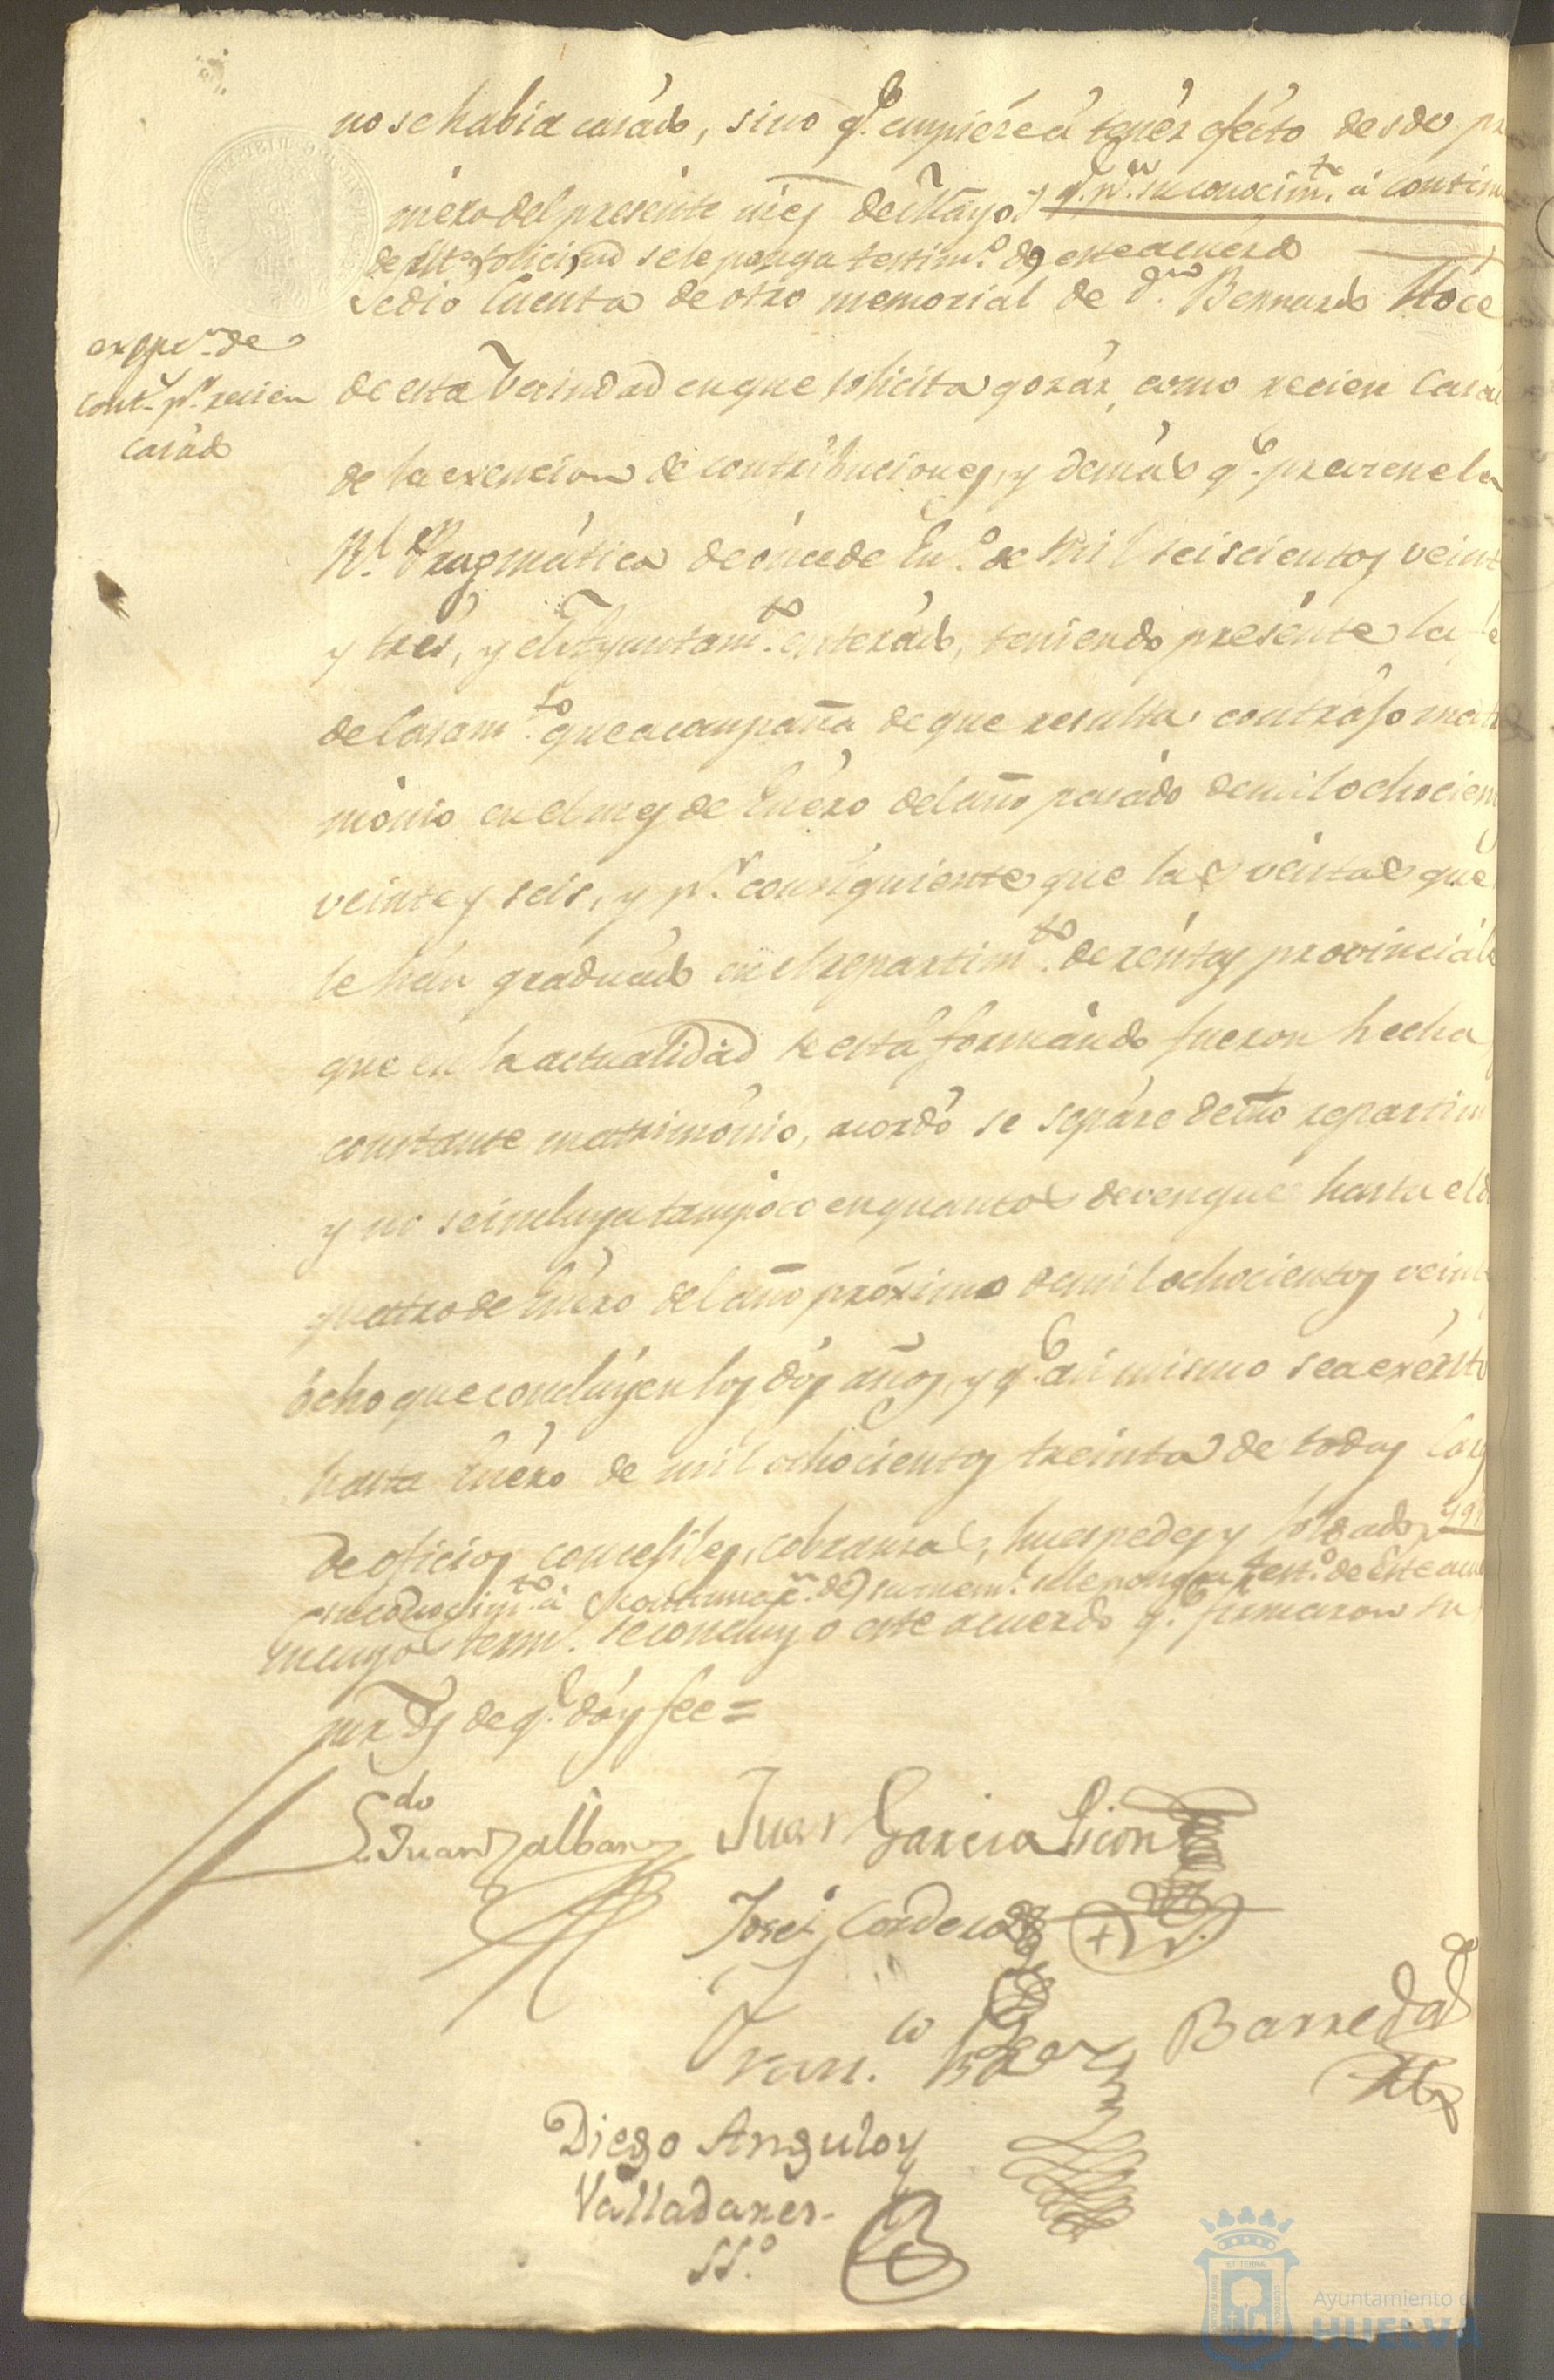 no se habia casádo, sino q.e empiéze á tenér efécto desde pr
mèro del presente mes de Mayo y q.e p.a su conocim.to á contin
de esta solicitud se le ponga testim.o de este acuérdo
Se dió Cuenta de otro memorial de d.n Bernardo
exen.n de
cont.s p.r recien
casádo
de esta Vecindad en que solicita gozár, como recien Casád
de la exencion de contribuciones, y demás q.e previene la
R.l Pragmática de ónce de En.o de mil seiscientos veint
y trés, y el Ayuntam.to enterádo, teniendo presénte la fe
de Casam.to que acompaña de que resulta contrájo matri
mónio en el mes de Enéro del año pasádo de mil ochocien
veinte y seis, y p.r consiguiente que las véntas que
le hán graduádo en el repartim.to de réntas provinciále
que en la actualidád se está formándo fueron hechas
constante matrimónio, acordó se sepáre de dho repartim
y no se incluya tampoco en quantos devengue hasta el d
quatro de Enéro del año próximo de mil ochocientos veint
ócho que conclúyen los dós años, y q.e así mismo sea exénto
hasta Enéro de mil ochocientos treinta de todas Car
de oficios concejiles, cobranzas, huespedes y soldados y q.e
su conocim.to á continuac.n de su mem.l se le ponga test.o de Este acue
en cuyos term.s se concluyo este acuerdo q.e firmaron su
mrzds de q.e dóy fee =
L.do Juan Zalbany Juan Garcia Picon
José Cordero
Fran.co Barreda
Diego Angulo y
Valladares
SS.o
Ayuntamiento d
HUELVA